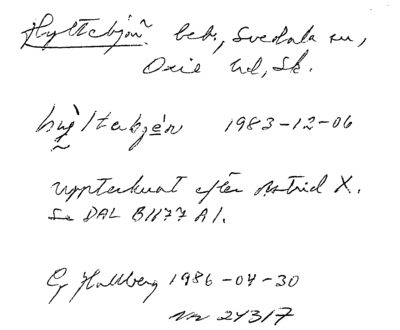 Hyltebjär beb., Svedala sn,
Oxie hd, Sk.
1983-12-06
Upptecknat efter Astrid X.
Se DAL B1177 A1.
G Hallberg 1986-04-30
Nr 24317